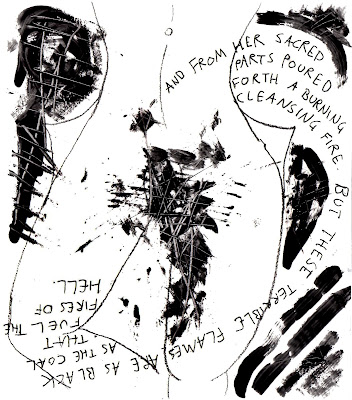 AND FROM HER SACRED
PARTS POURED
FORTH A BURNING
CLEANSING FIRE
BUT THESE
TERRIBLE FLAMES
ARE AS BLACK
AS THE COAL
THAT
FUEL THE
FIRES OF
HELL.